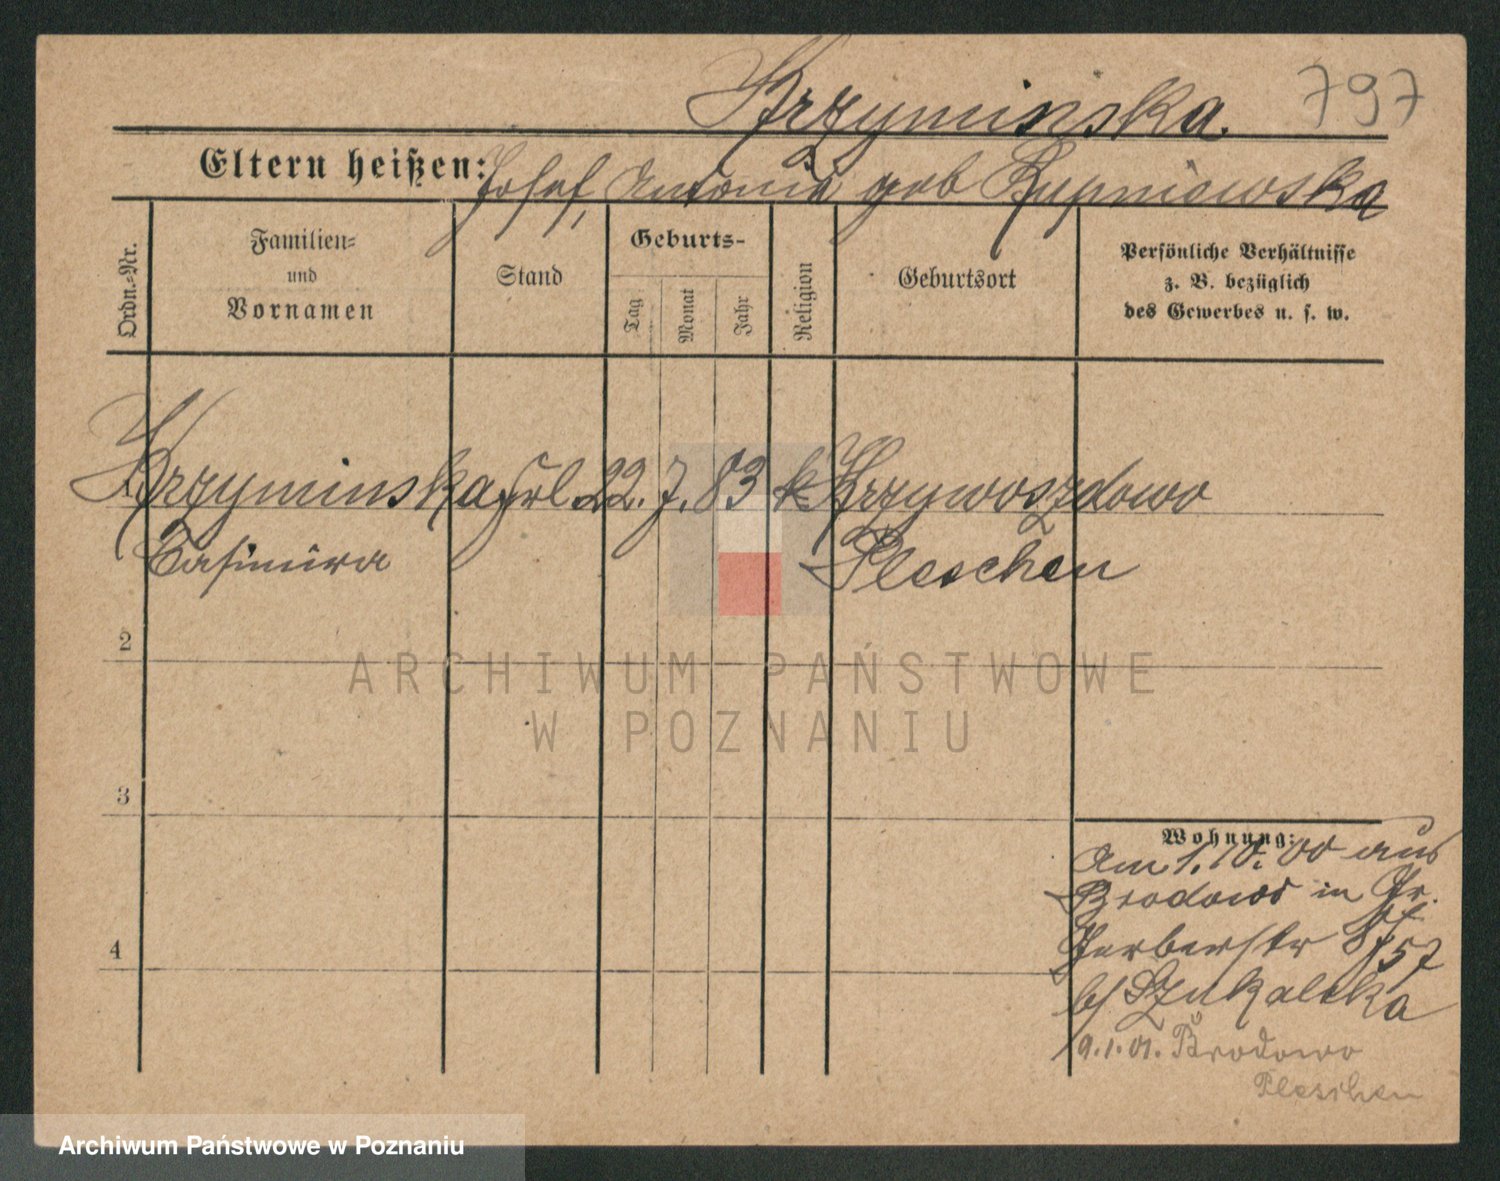 Krzyminska. 797
Eltern heißen: Josef, Antonia geb Rupniewska
Ordn.=Nr.
Familien=
und
Vornamen
Stand
Geburts-
Tag
Monat
Jahr
Religion
Geburtsort
Persönliche Verhältnisse
z. B. bezüglich
des Gewerbes u. s. w.
Krzyminska Frl 22. 7. 83 k Krzywoszdowo
Casimira Pleschen
2
3
4
Wohnung:
Am 1. 10. 00 aus
Brodowo in Gr.
Gerberstr 57
b/ Szukalska
9. 1. 01. Brodowo
Pleschen
ARCHIWUM PAŃSTWOWE
W POZNANIU
Archiwum Państwowe w Poznaniu